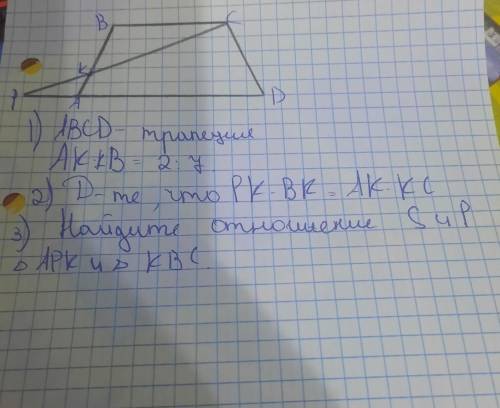 B C
K
P A D
1) ABCD - трапеция
AK:KB = 2:7.
2) D-те, что PK·BK = AK·KC
3) Найдите отношение S и P
▵ APK и ▵ KBC.